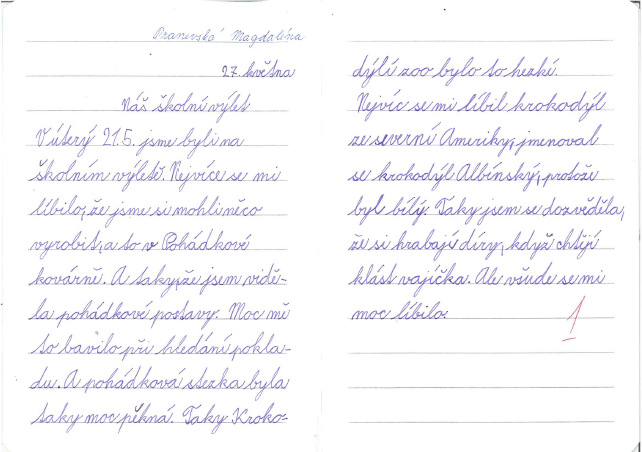 Pranevská Magdaléna
27. května
Náš školní výlet
V úterý 21.5. jsme byli na
školním výletě. Nejvíce se mi
líbilo, že jsme si mohli něco
vyrobit, a to v Pohádkové
kovárně. A taky, že jsem vidě-
la pohádkové postavy. Moc mě
to bavilo při hledání pokla-
du. A pohádková stezka byla
taky moc pěkná. Taky Kroko-
dýlí zoo bylo to hezké.
Nejvíc se mi líbil krokodýl
ze severní Ameriky, jmenoval
se krokodýl Albínský, protože
byl bílý. Taky jsem se dozvěděla,
že si hrabají díry, když chtějí
klást vajíčka. Ale všude se mi
moc líbilo.
1